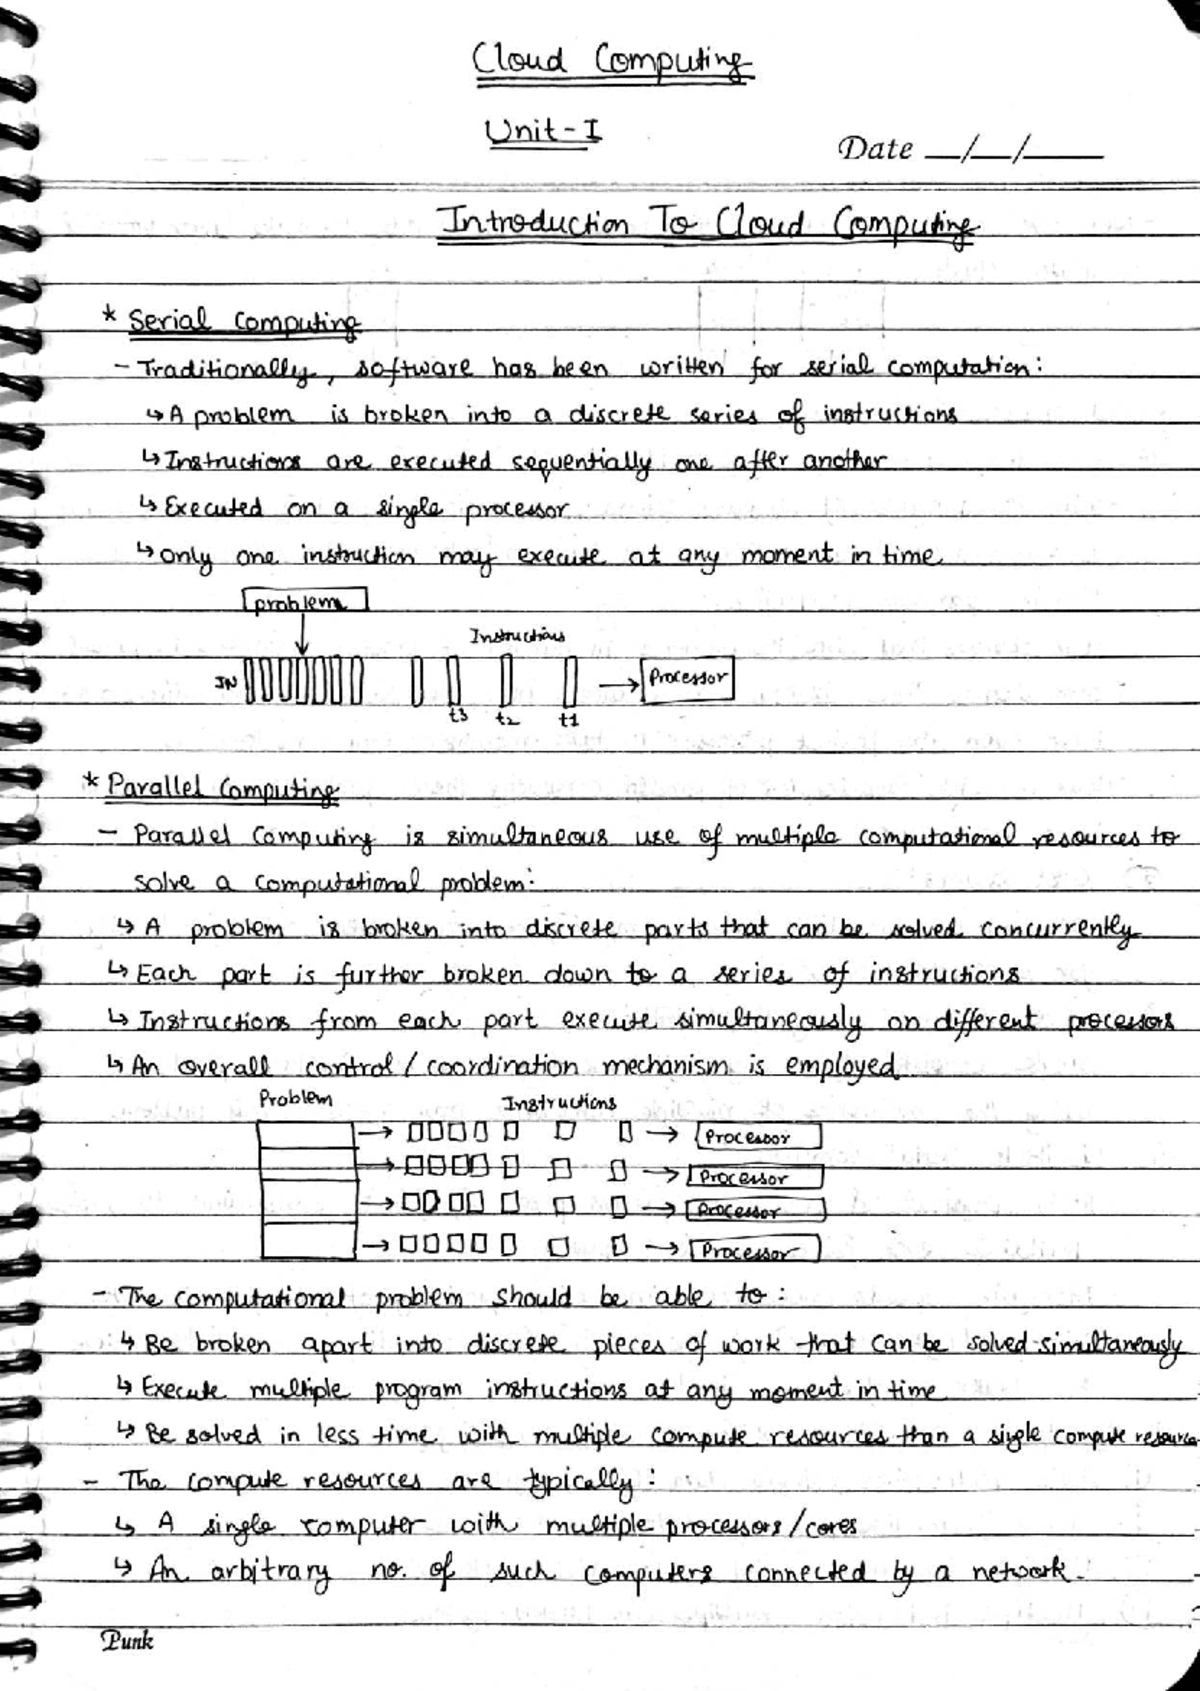 Cloud Computing
Unit-I
Date __/__/____
Introduction To Cloud Computing
* Serial Computing
- Traditionally, software has been written for serial computation:
↳ A problem is broken into a discrete series of instructions
↳ Instructions are executed sequentially one after another
↳ Executed on a single processor
↳ only one instruction may execute at any moment in time
problem
Instructions
IN
Processor
t3 t2 t1
* Parallel Computing
- Parallel Computing is simultaneous use of multiple computational resources to
solve a computational problem:
↳ A problem is broken into discrete parts that can be solved concurrently
↳ Each part is further broken down to a series of instructions
↳ Instructions from each part execute simultaneously on different processors
↳ An overall control/coordination mechanism is employed
Problem Instructions
Processor
Processor
Processor
Processor
- The computational problem should be able to:
↳ Be broken apart into discrete pieces of work that can be solved simultaneously
↳ Execute multiple program instructions at any moment in time
↳ Be solved in less time with multiple compute resources than a single compute resource
- The compute resources are typically:
↳ A single computer with multiple processors/cores
↳ An arbitrary no. of such computers connected by a network.
Punk